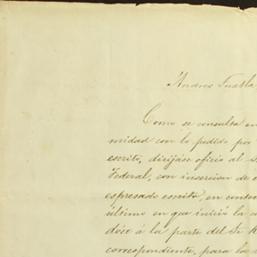 Andres Tuxtla
Como se consulta en
midad con lo pedido por
escrito, dirijase oficio al
Federal, con insercion de
espresado escrito, en conte
último en que inició la
dóse á la parte del Sr
correspondiente, para los